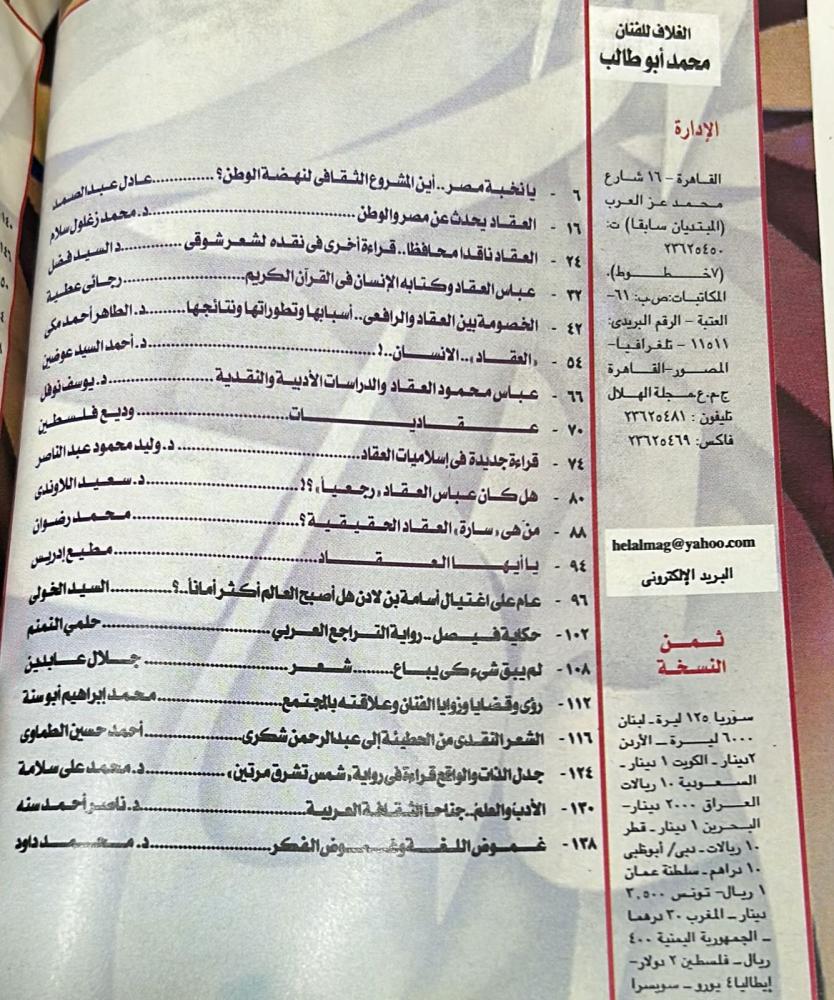 الغلاف للفنان
محمد أبو طالب
الإدارة
القاهرة - ١٦ شارع
محمد عز العرب
(المبتديان سابقا) ت:
٢٣٦٢٥٤٥٠
(٧خطــوط).
المكاتبات: ص.ب: ٦١-
العتبة - الرقم البريدى:
١١٥١١ - تلغرافيا-
المصور-القاهرة
ج.م.ع مجلة الهلال
تليفون : ٢٣٦٢٥٤٨١
فاكس: ٢٣٦٢٥٤٦٩
helalmag@yahoo.com
البريد الإلكترونى
ثمن
النسخة
سوريا ١٢٥ ليرة - لبنان
٦٠٠٠ ليرة - الأردن
٢دينار - الكويت ١ دينار -
السعودية ١٠ ريالات
العراق ٢٠٠٠ دينار-
البحرين ١ دينار - قطر
١٠ ريالات - دبى/ أبوظبى
١٠ دراهم - سلطنة عمان
١ ريال- تونس ٣.٥٠٠
دينار - المغرب ٣٠ درهما
- الجمهورية اليمنية ٤٠٠
ريال - فلسطين ٢ دولار-
إيطاليا٤ يورو - سويسرا
٦ - يا نخبة مصر .. أين المشروع الثقافى لنهضة الوطن؟ ............ عادل عبد الصمد
١٦ - العقاد يحدث عن مصر والوطن ............ د. محمد زغلول سلام
٢٤ - العقاد ناقدا محافظا.. قراءة أخرى فى نقده لشعر شوقى ............ د السيد فضل
٣٢ - عباس العقاد وكتابه الإنسان فى القرآن الكريم ............ رجائى عطية
٤٢ - الخصومة بين العقاد والرافعى.. أسبابها وتطوراتها ونتائجها ............ د. الطاهر أحمد مكى
٥٤ - «العقاد» .. الانسان ..! ............ د. أحمد السيد عوضين
٦٦ - عباس محمود العقاد والدراسات الأدبية والنقدية ............ د. يوسف نوفل
٧٠ - عقاديات ............ وديع فلسطين
٧٤ - قراءة جديدة فى إسلاميات العقاد ............ د. وليد محمود عبد الناصر
٨٠ - هل كان عباس العقاد «رجعياً» ؟! ............ د. سعيد اللاوندى
٨٨ - من هى «سارة» العقاد الحقيقية؟ ............ محمد رضوان
٩٤ - يا أيها العقاد ............ مطيع إدريس
٩٦ - عام على اغتيال أسامة بن لادن هل أصبح العالم أكثر أماناً..؟ ............ السيد الخولى
١٠٢- حكاية فيصل .. رواية التراجع العربي ............ حلمي النمنم
١٠٨- لم يبق شىء كى يباع ........ شعر ............ جلال عابدين
١١٢- رؤى وقضايا وزوايا الفنان وعلاقته بالمجتمع ............ محمد إبراهيم أبو سنة
١١٦- الشعر النقدى من الحطيئة إلى عبد الرحمن شكرى ............ أحمد حسين الطماوى
١٢٤- جدل الذات والواقع قراءة فى رواية «شمس تشرق مرتين» ............ د. محمد على سلامة
١٣٠- الأدب والعلم.. جناحا الثقافة العربية ............ د. ناصر أحمد سنه
١٣٨- غموض اللغة وغموض الفكر ............ د. محمد داود